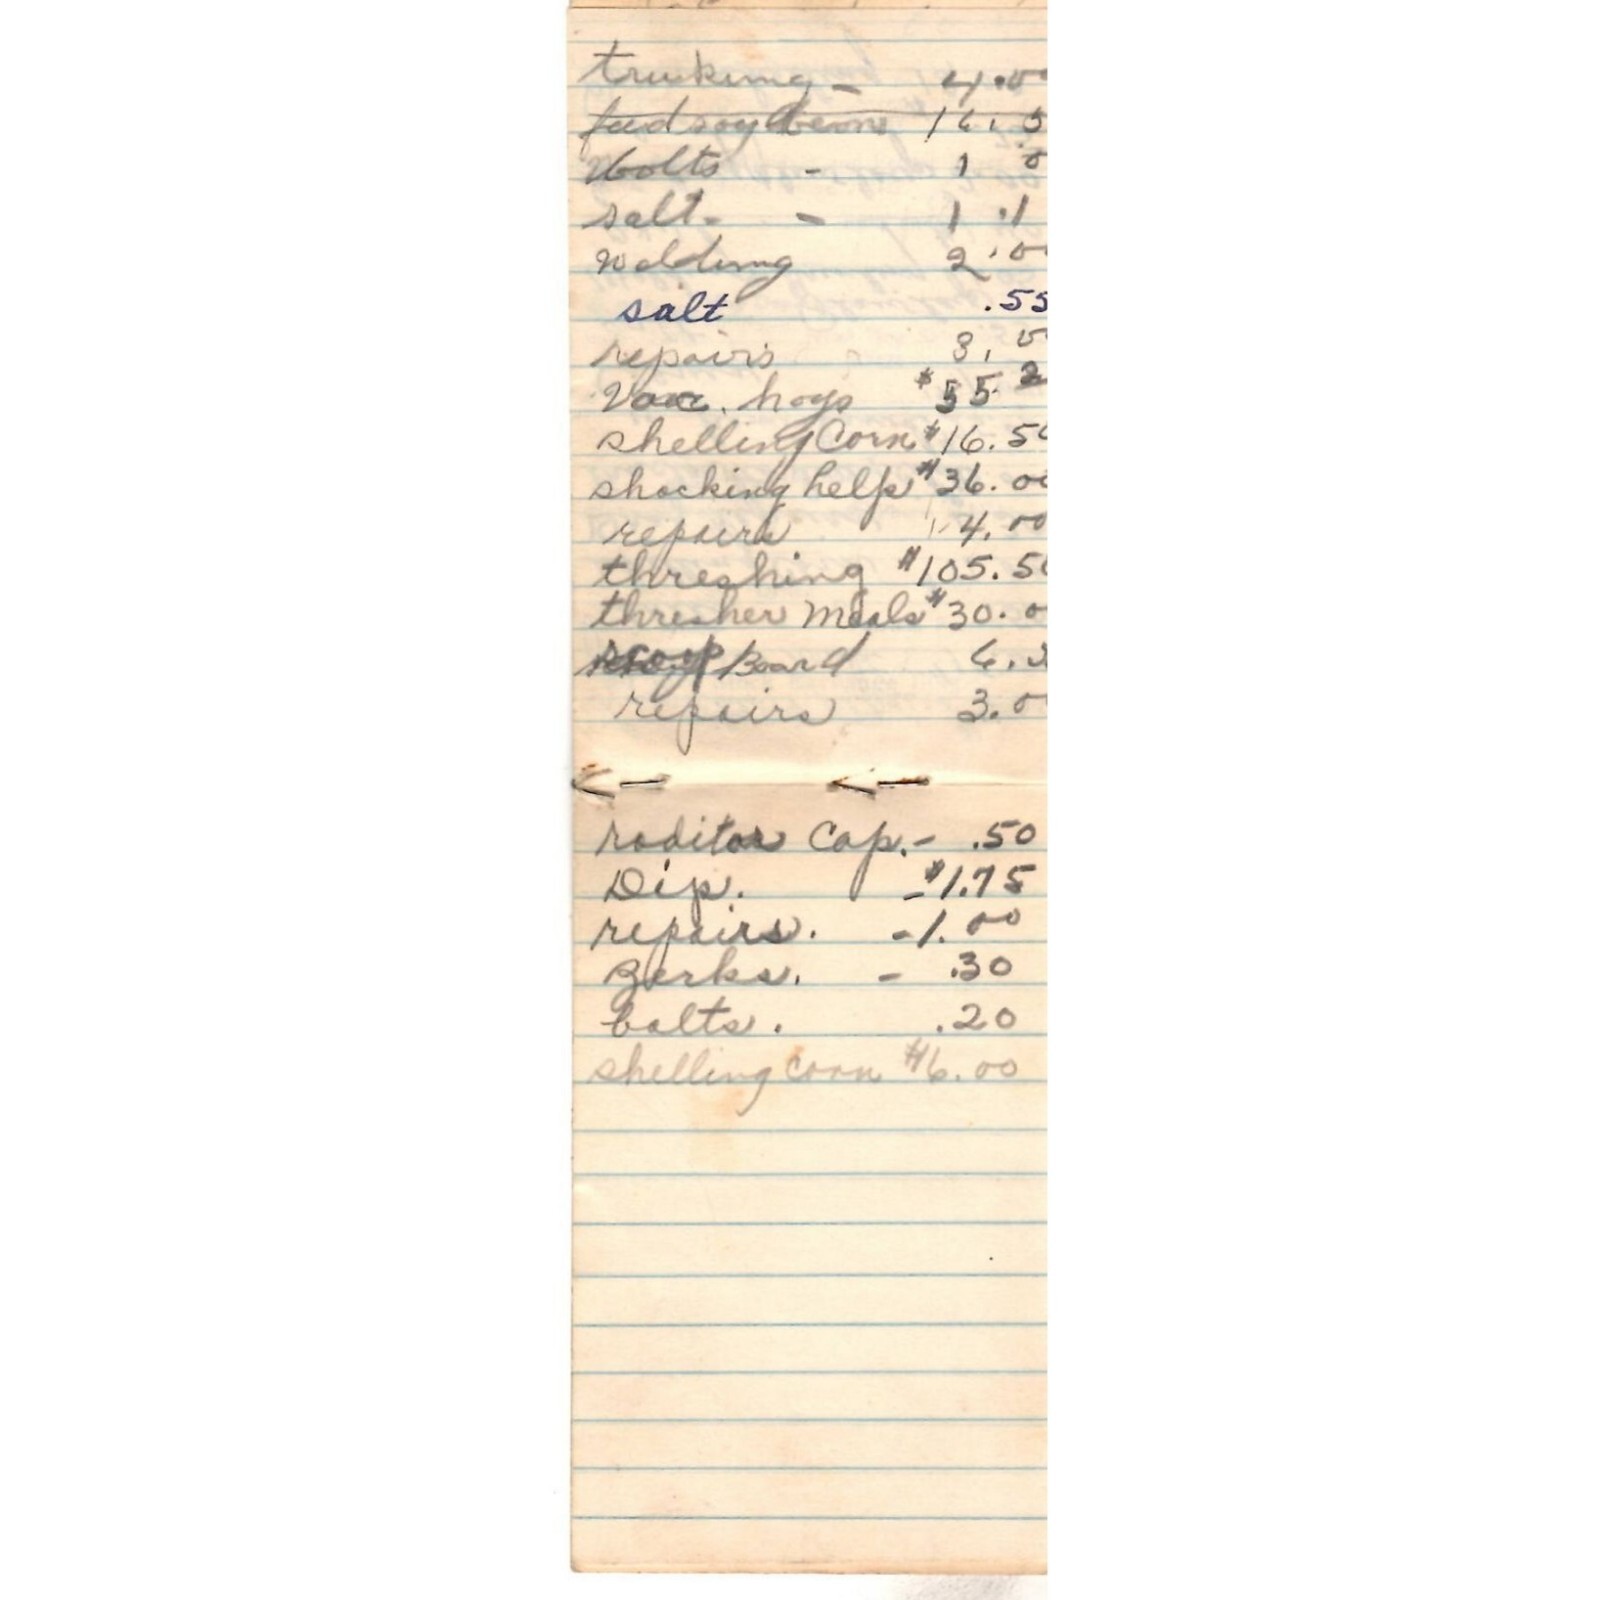 trucking - 4.0
feed soy beans 16.5
bolts - 1 0
salt - - 1.1
welding 2.0
salt .55
repairs 3.5
Vacc. hogs $55.2
shelling Corn $16.50
shocking help $36.00
repairs 14.00
threshing $105.50
thresher Meals $30.0
scoop Board 6.
repairs 3.0
raditor Cap. - .50
Dip. - $1.75
repairs. - 1.00
Zerks. - .30
bolts. .20
shelling corn $6.00